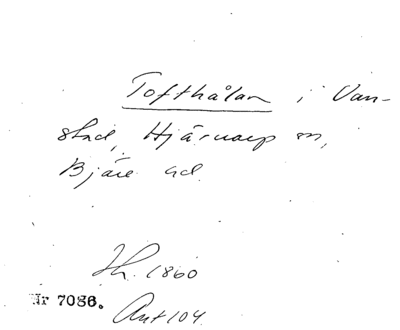 Tofthålan i Van-
stad, Hjärnarp sn,
Bjäre hd.
Th. 1860
Nr 7086.
Ant 104.